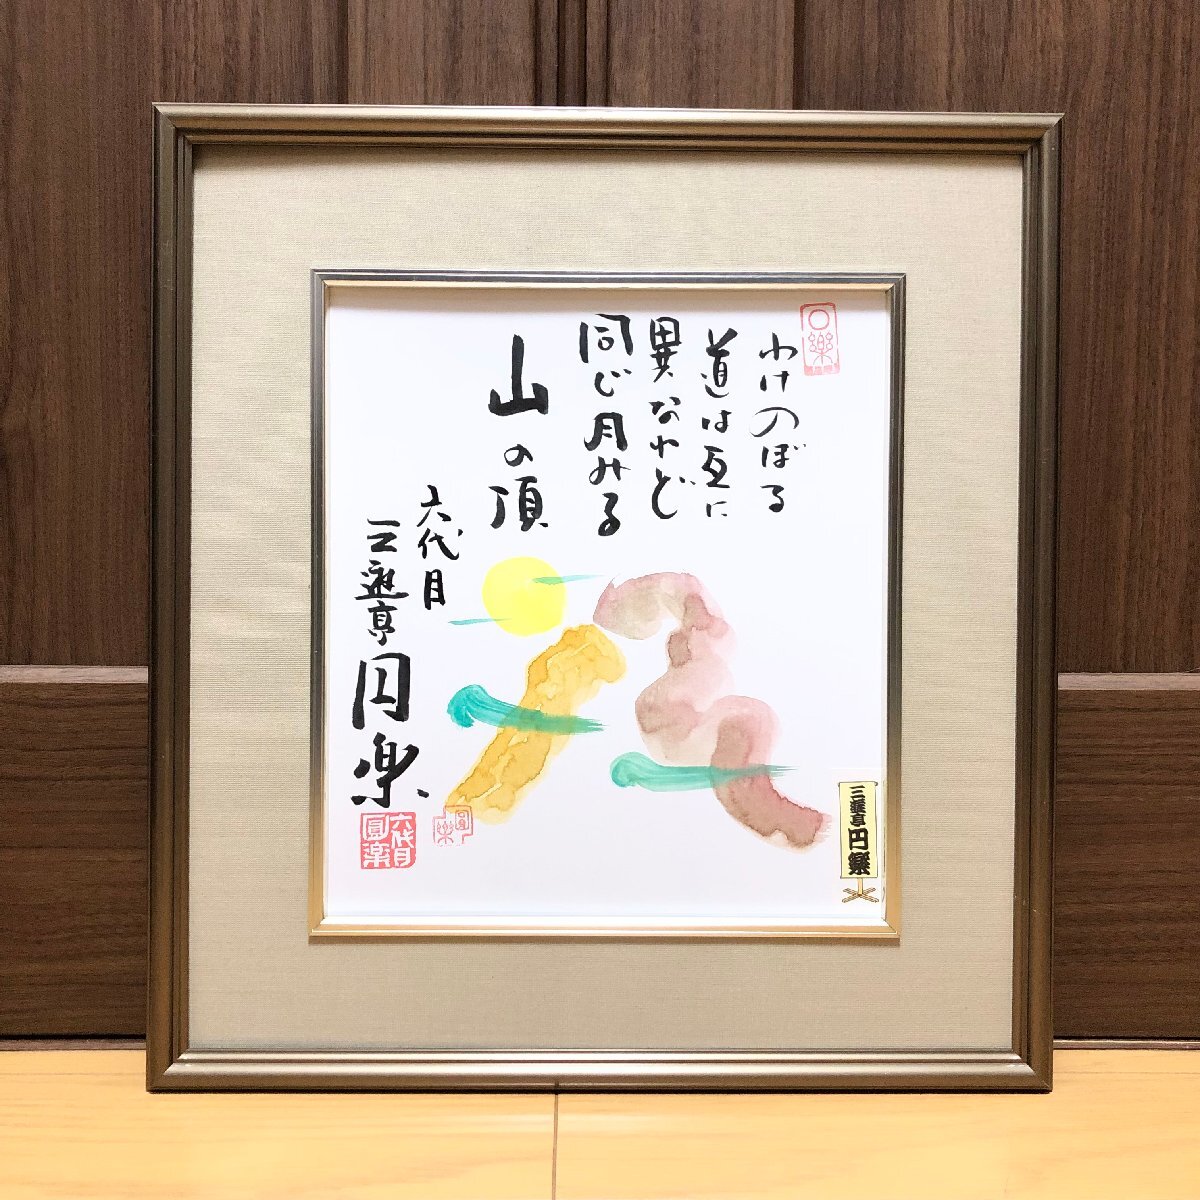 わけのぼる
道は互に
異なれど
同じ月みる
山の頂
六代目
三遊亭
円楽
六代目
圓楽
圓楽
三遊亭円楽